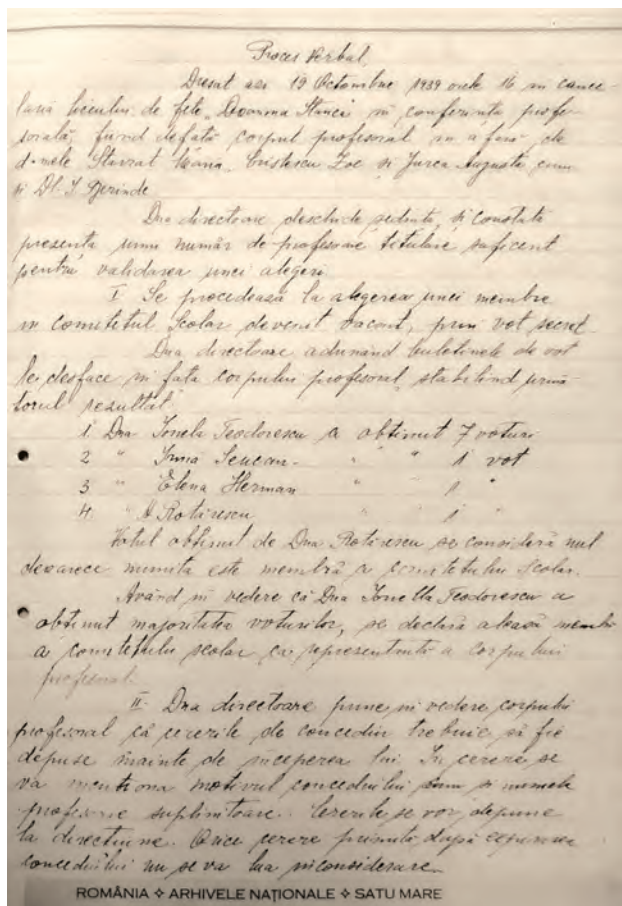 Proces Verbal
Dresat azi 19 Octombrie 1939 orele 16 în cance-
laria liceului de fete „Doamna Stanca" în conferința profe-
sorală, fiind defață corpul profesoral în afară de
d-nele Stavrat, Cristescu Zoe și Jurca Augusta, cum
și Dl. I. Gherinde
Dna directoare deschide ședința și constată
prezența unui număr de profesoare titulare suficent
pentru validarea unei alegeri.
I Se procedează la alegerea unei membre
în Comitetul Școlar devenit vacant, prin vot secret.
Dna directoare adunând buletinele de vot
le desface în fața corpului profesoral, stabilind urmă-
torul rezultat
1 Dna Ionela Teodorescu a obținut 7 voturi
2 " Irina Seucan - " " 1 vot
3 " Elena Herman " 1 "
4 " Rotărescu " 1 "
Votul obținut de Dna Rotărescu se consideră nul
deoarece numita este membră a comitetului școlar.
Având în vedere că Dna Ionella Teodorescu a
obținut majoritatea voturilor, se declară aleasă membră
a comitetului școlar ca reprezentantă a corpului
profesoral.
II. Dna directoare pune în vedere corpului
profesoral că cererile de concediu trebuie să fie
depuse înainte de începerea lui. În cerere se
va menționa motivul concediului cum și numele
profesoarei suplinitoare. Cererile se vor depune
la direcțiune. Orice cerere primită după expirarea
concediului nu se va lua în considerare.
ROMÂNIA ❖ ARHIVELE NAȚIONALE ❖ SATU MARE